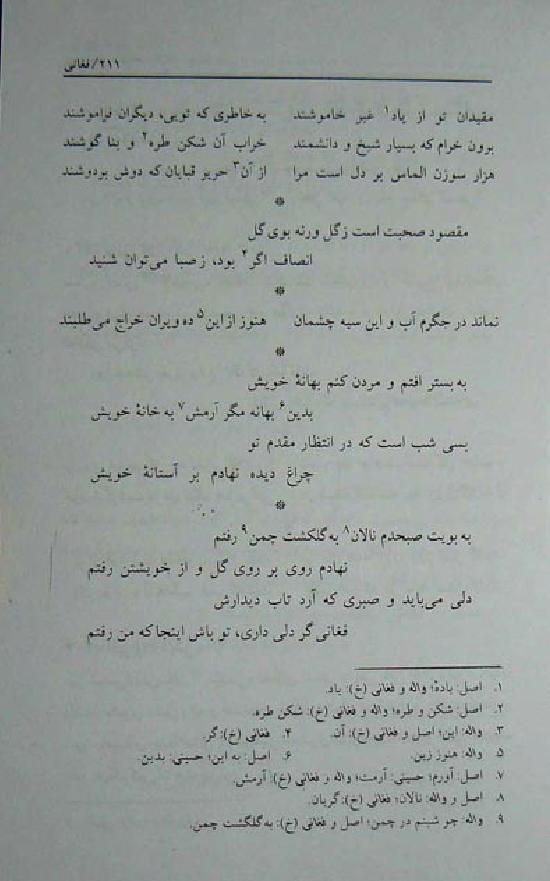 ۲۱۱/فغانی
مقیدان تو از یاد۱ غیر خاموشند به خاطری که تویی، دیگران فراموشند
برون خرام که بسیار شیخ و دانشمند خراب آن شکن طره۲ و بنا گوشند
هزار سوزن الماس بر دل است مرا از آن۳ حریر قبایان که دوش بردوشند
*
مقصود صحبت است زگل ورنه بوی گل
انصاف اگر۴ بود، ز صبا می‌توان شنید
*
نماند در جگرم آب و این سیه چشمان هنوز از این۵ ده ویران خراج می‌طلبند
*
به بستر افتم و مردن کنم بهانهٔ خویش
بدین۶ بهانه مگر آرمش۷ به خانهٔ خویش
بسی شب است که در انتظار مقدم تو
چراغ دیده نهادم بر آستانهٔ خویش
*
به بویت صبحدم نالان۸ به گلگشت چمن۹ رفتم
نهادم روی بر روی گل و از خویشتن رفتم
دلی می‌باید و صبری که آرد تاب دیدارش
فغانی گر دلی داری، تو باش اینجا که من رفتم
۱. اصل: یادهٔ؛ واله و فغانی (خ): یاد.
۲. اصل: شکن و طره؛ واله و فغانی (خ): شکن طره.
۳. واله: این؛ اصل و فغانی (خ): آن. ۴. فغانی (خ): گر.
۵. واله: هنوز زین. ۶. اصل: به این؛ حسینی: بدین.
۷. اصل: آورم؛ حسینی: آرمت؛ واله و فغانی (خ): آرمش.
۸. اصل و واله: نالان؛ فغانی (خ): گریان.
۹. واله: چو شبنم در چمن؛ اصل و فغانی (خ): به گلگشت چمن.